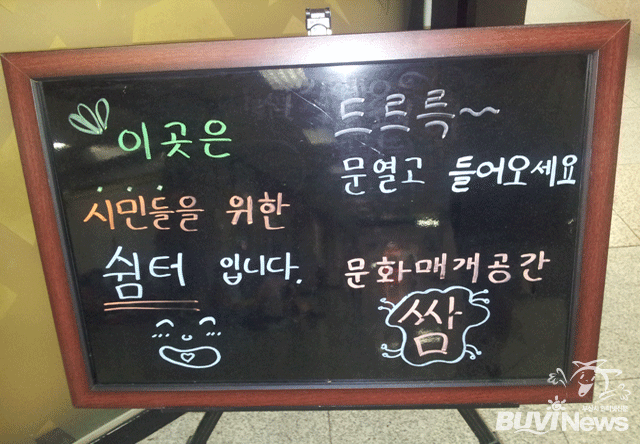 이곳은
시민들을 위한
쉼터 입니다.
드르륵~~
문열고 들어오세요
문화매개공간
쌈
BUVI News